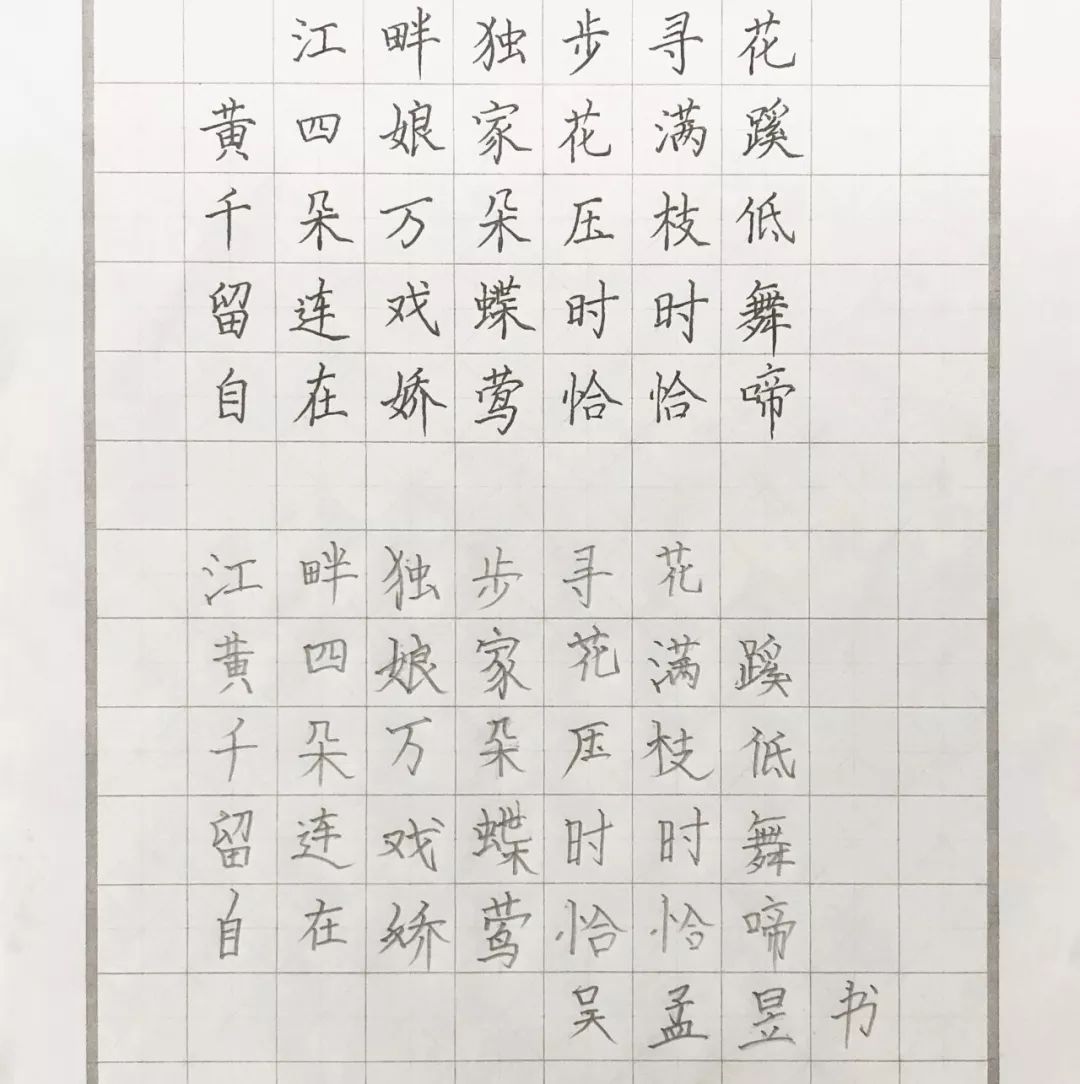 江畔独步寻花
黄四娘家花满蹊
千朵万朵压枝低
留连戏蝶时时舞
自在娇莺恰恰啼
江畔独步寻花
黄四娘家花满蹊
千朵万朵压枝低
留连戏蝶时时舞
自在娇莺恰恰啼
吴孟昱书